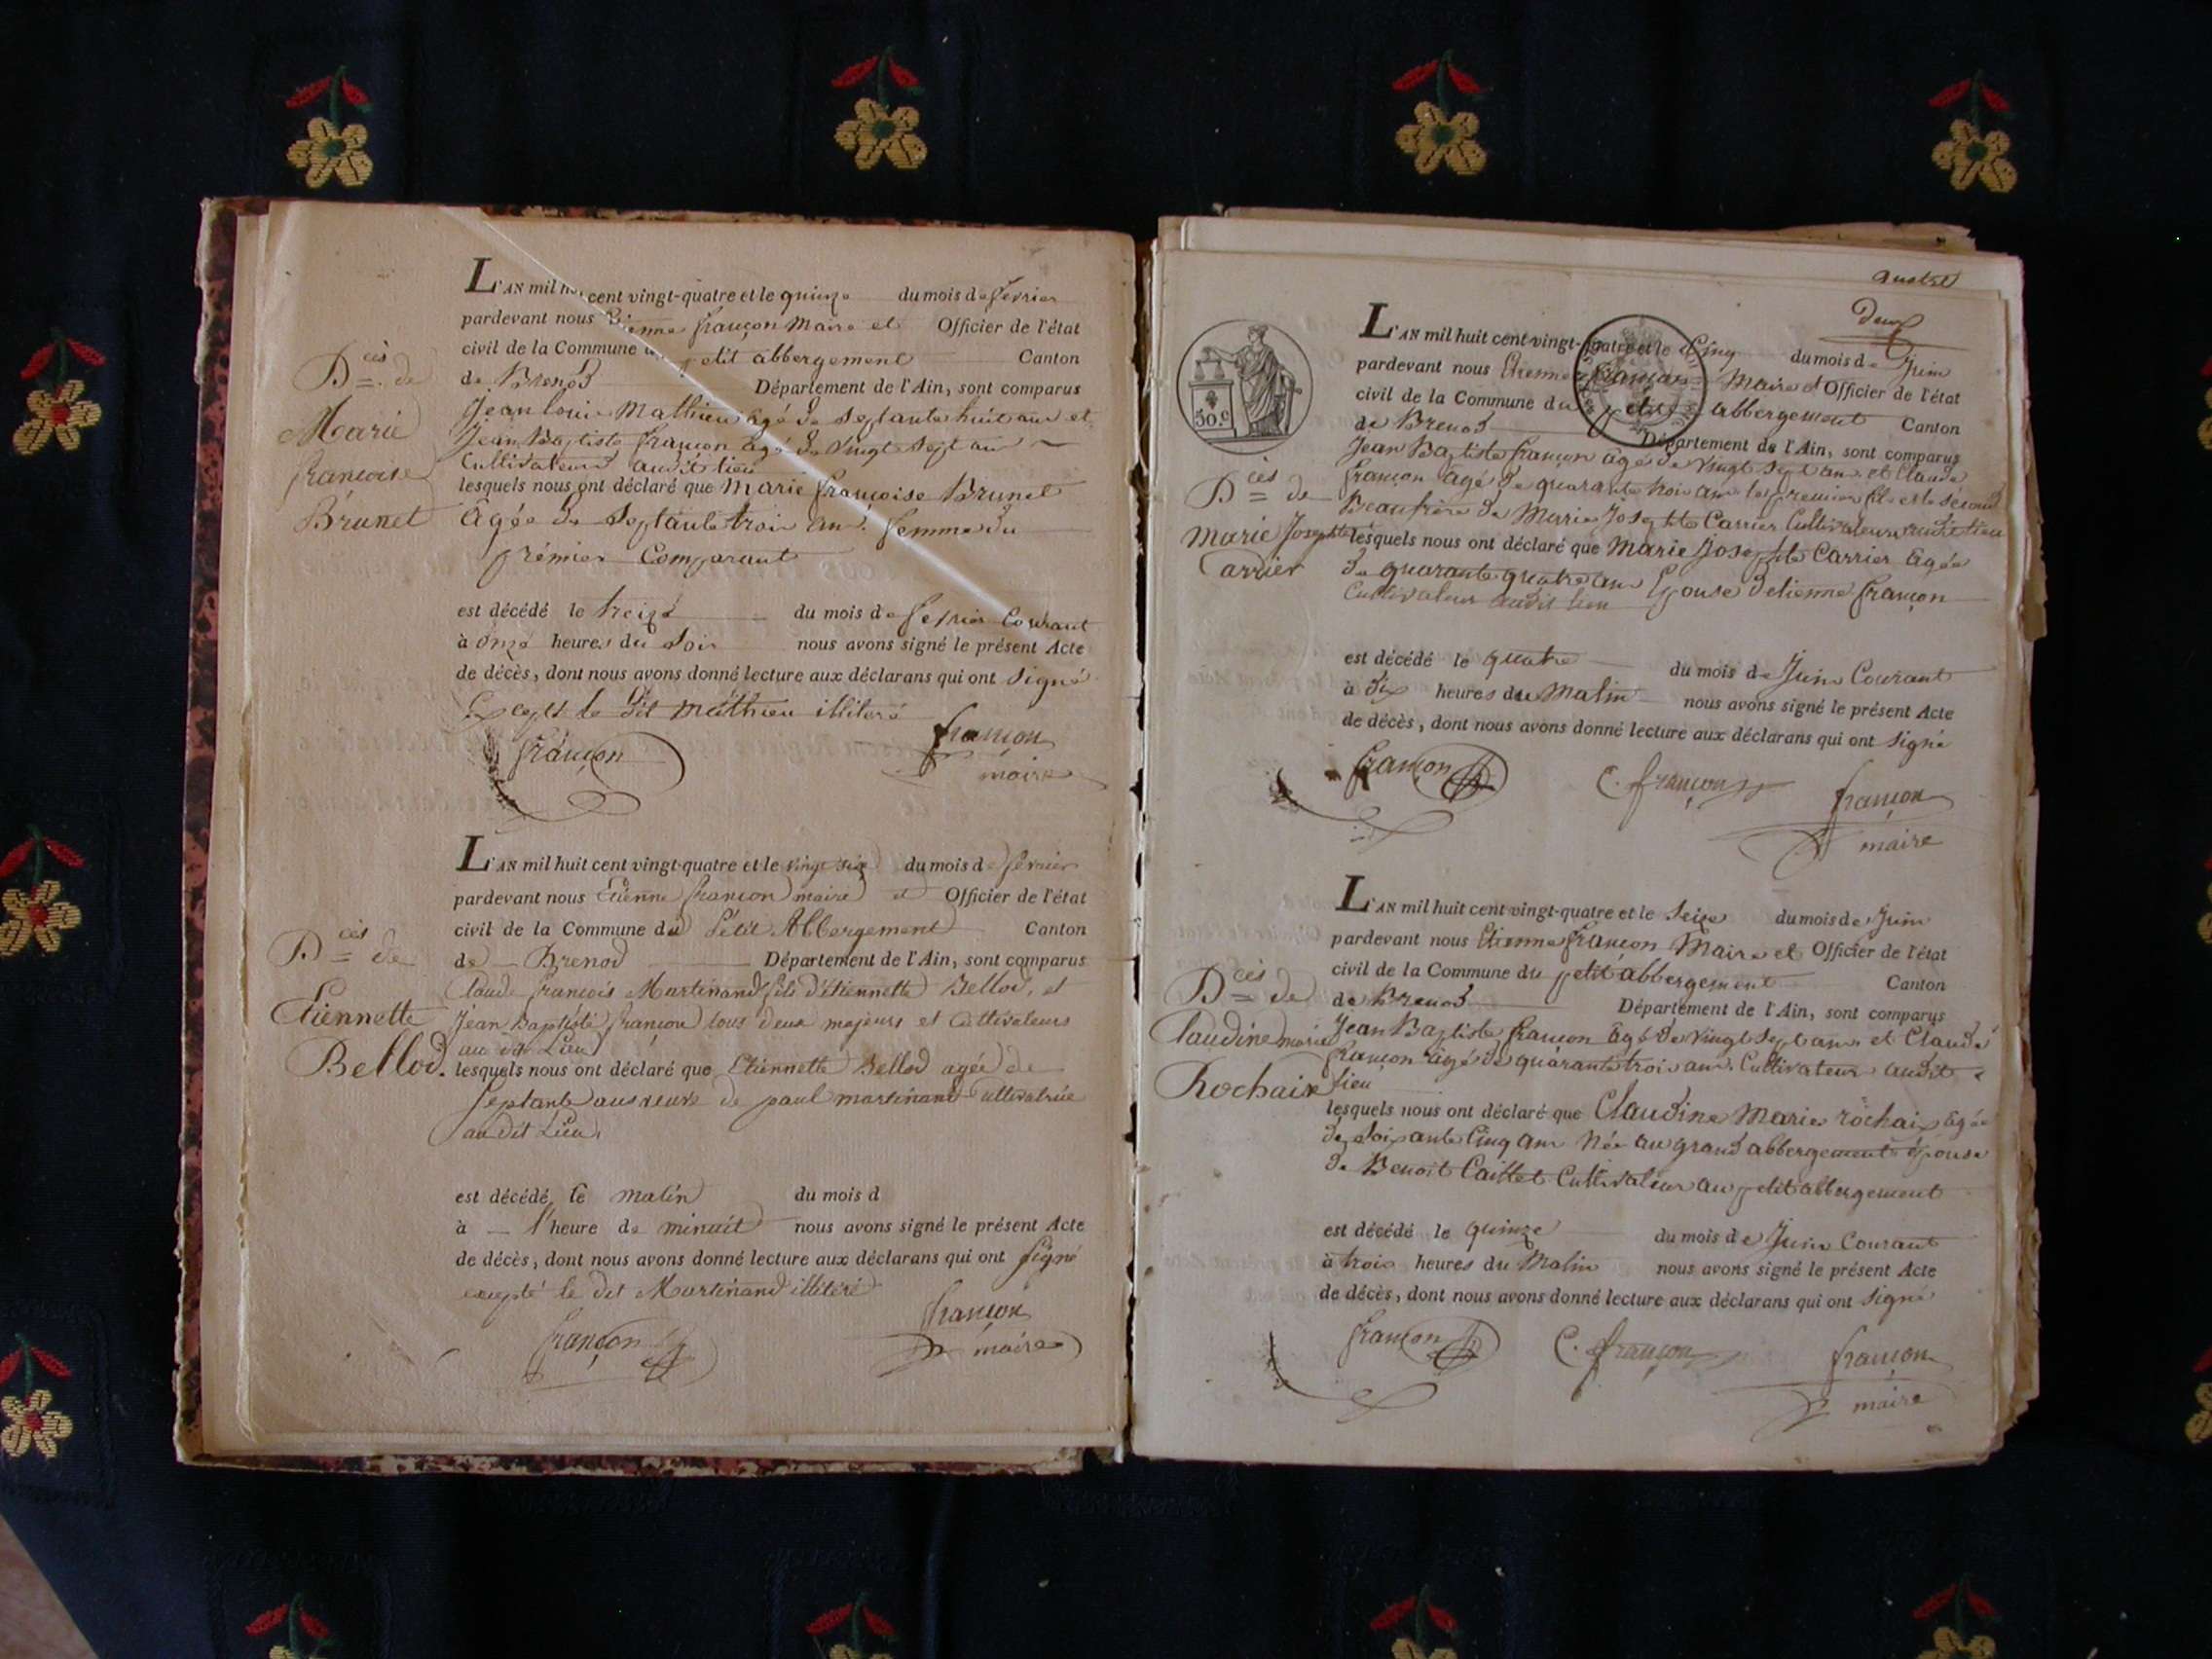 L'AN mil hu cent vingt-quatre et le quinze du mois de fevrier
pardevant nous Etienne françon Maire et Officier de l'état
civil de la Commune du petit abbergement Canton
de Brenod Département de l'Ain, sont comparus
Jean louis Mathieu agé de septante huit ans et
Jean Baptiste françon agé de vingt sept ans
Cultivateurs audit lieu
lesquels nous ont déclaré que Marie françoise Brunet
agée de Septante trois ans. femme du
prémier Comparant
est décédé le treize du mois de fevrier Courant
à onze heures du Soir nous avons signé le présent Acte
de décès, dont nous avons donné lecture aux déclarans qui ont signé
Excepté le dit Mathieu illiteré
françon
françon
maire
Dcès de
Marie
françoise
Brunet
L'AN mil huit cent vingt-quatre et le vingt six du mois de fevrier
pardevant nous Etienne françon maire et Officier de l'état
civil de la Commune du Pétit Abbergement Canton
de Brenod Département de l'Ain, sont comparus
Claude françois Martinand fils d'étiennette Bellod, et
Jean Baptiste françon tous deux majeurs et Cultivateurs
au dit Lieu
lesquels nous ont déclaré que Etiennette Bellod agée de
septante ans veuve de paul martinand cultivatrice
au dit Lieu
est décédé le matin du mois d
à l'heure de minuit nous avons signé le présent Acte
de décès, dont nous avons donné lecture aux déclarans qui ont signé
excepté le dit Martinand illitéré
françon
françon
maire
Dcès de
Etiennette
Bellod.
quatre
deux
50.c
L'AN mil huit cent vingt-quatre et le Cinq du mois de Juin
pardevant nous Etienne françon Maire et Officier de l'état
civil de la Commune du petit abbergement Canton
de Brenod Département de l'Ain, sont comparus
Jean Baptiste françon agé de vingt sept ans et Claude
françon agé de quarante trois ans le premier fils et le second
Beaufrère de Marie Josephte Carrier Cultivateurs audit lieu
lesquels nous ont déclaré que Marie Josephte Carrier agée
de quarante quatre ans Epouse d'etienne françon
Cultivateur audit lieu
est décédé le quatre du mois de Juin Courant
à dix heures du Matin nous avons signé le présent Acte
de décès, dont nous avons donné lecture aux déclarans qui ont signé
françon
C. françon
françon
maire
Dcès de
Marie Josephte
Carrier
L'AN mil huit cent vingt-quatre et le Seize du mois de Juin
pardevant nous Etienne françon Maire et Officier de l'état
civil de la Commune du petit abbergement Canton
de Brenod Département de l'Ain, sont comparus
Jean Baptiste françon agé de vingt sept ans et Claude
françon agé de quarante trois ans Cultivateurs audit
lieu
lesquels nous ont déclaré que Claudine Marie rochaix agée
de Soixante Cinq ans Née au grand abbergement épouse
de Benoit Caillet Cultivateur au petit abbergement
est décédé le quinze du mois de Juin Courant
à trois heures du Matin nous avons signé le présent Acte
de décès, dont nous avons donné lecture aux déclarans qui ont signé
françon
C. françon
françon
maire
Dcès de
Claudine marie
Rochaix